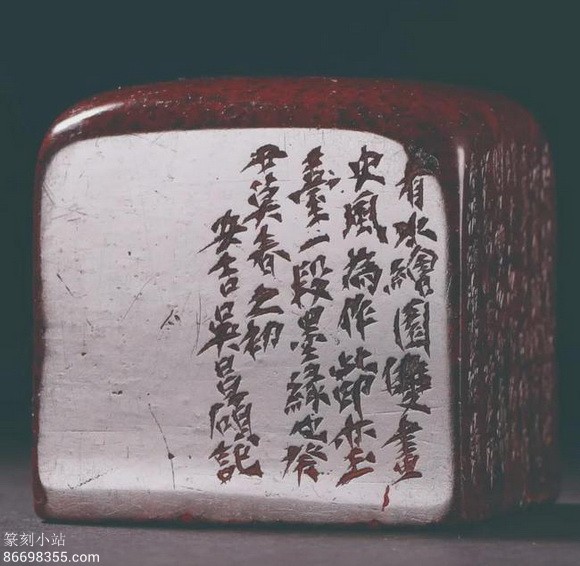 有水繪園雙畫
史風為作此印亦玉
臺一段墨緣也癸
丑莫春之初
安吉吳昌碩記
篆刻小站
86698355.com